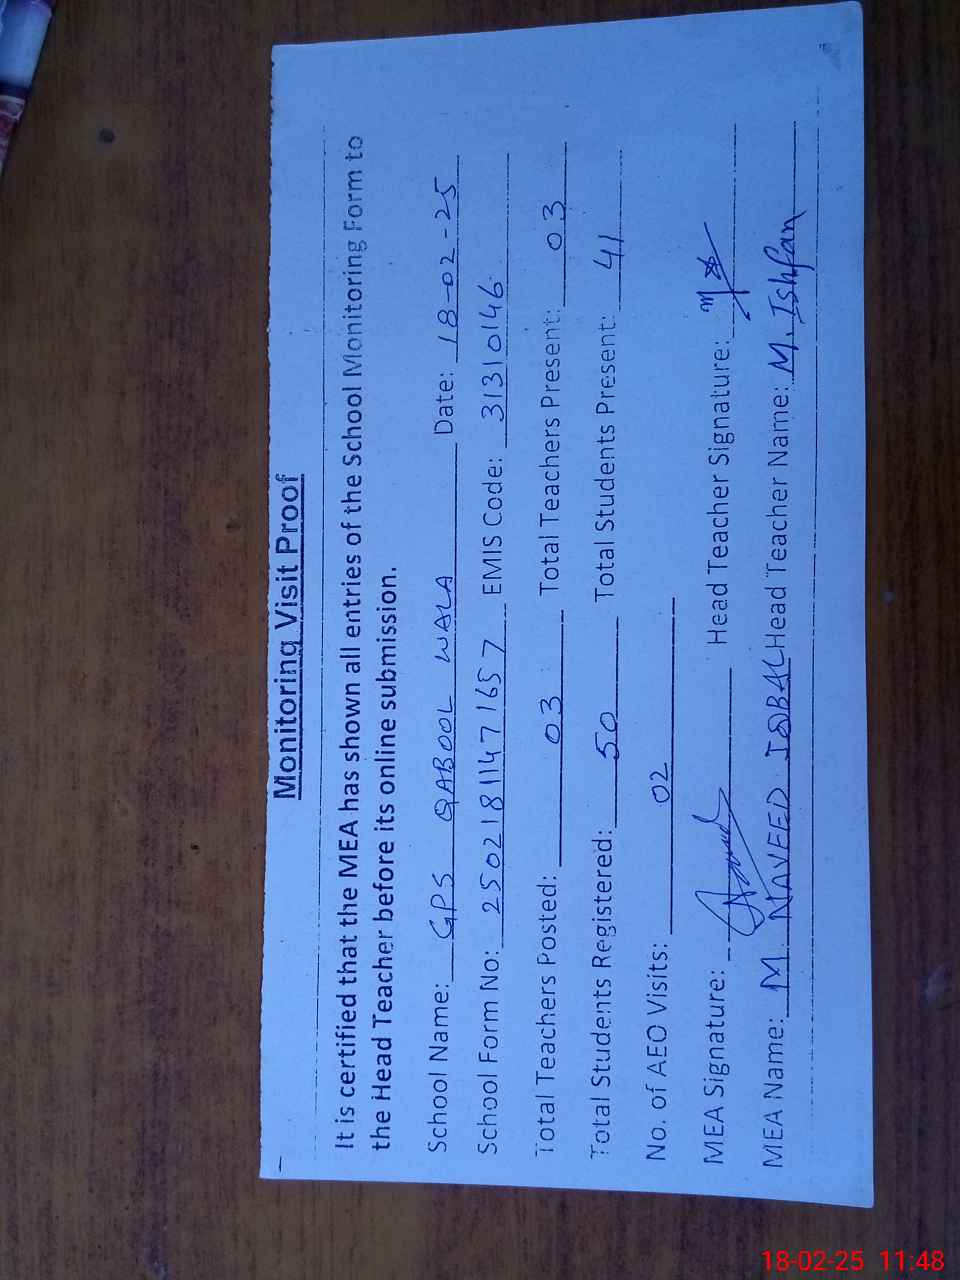 Monitoring Visit Proof
It is certified that the MEA has shown all entries of the School Monitoring Form to
the Head Teacher before its online submission.
School Name: GPS QABOOL WALA Date: 18-02-25
School Form No: 2502181147 1657 EMIS Code: 31310146
Total Teachers Posted: 03 Total Teachers Present: 03
Total Students Registered: 50 Total Students Present: 41
No. of AEO Visits: 02
MEA Signature: Head Teacher Signature:
MEA Name: M. NAVEED IQBAL Head Teacher Name: M. Ishfan
18-02-25 11:48